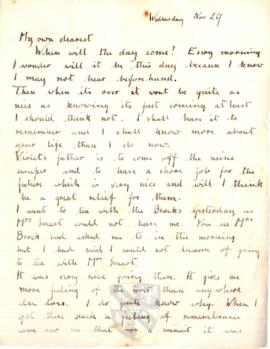 Wednesday Nov 29
My own dearest
When will the day come? Every morning
I wonder will it be this day because I know
I may not hear beforehand.
Then when its over it wont be quite as
nice as knowing its just coming at least
I should think not. I shall have it to
remember and I shall know more about
your life than I do now.
Violet's father is to come off the mine
sweeper and to have a shore job for the
future which is very nice and will I think
be a great relief for them.
I went to tea with the Brocks yesterday as
Mrs Smart could not have me. You see Mrs
Brock had asked me to in the morning
but I had said I could not because of going
to tea with Mrs Smart.
It was very nice going there. It gives me
more feeling of the than any where
else does. I do quite know why. When I
got there such a feeling of remembrance
came over me that I meant it was